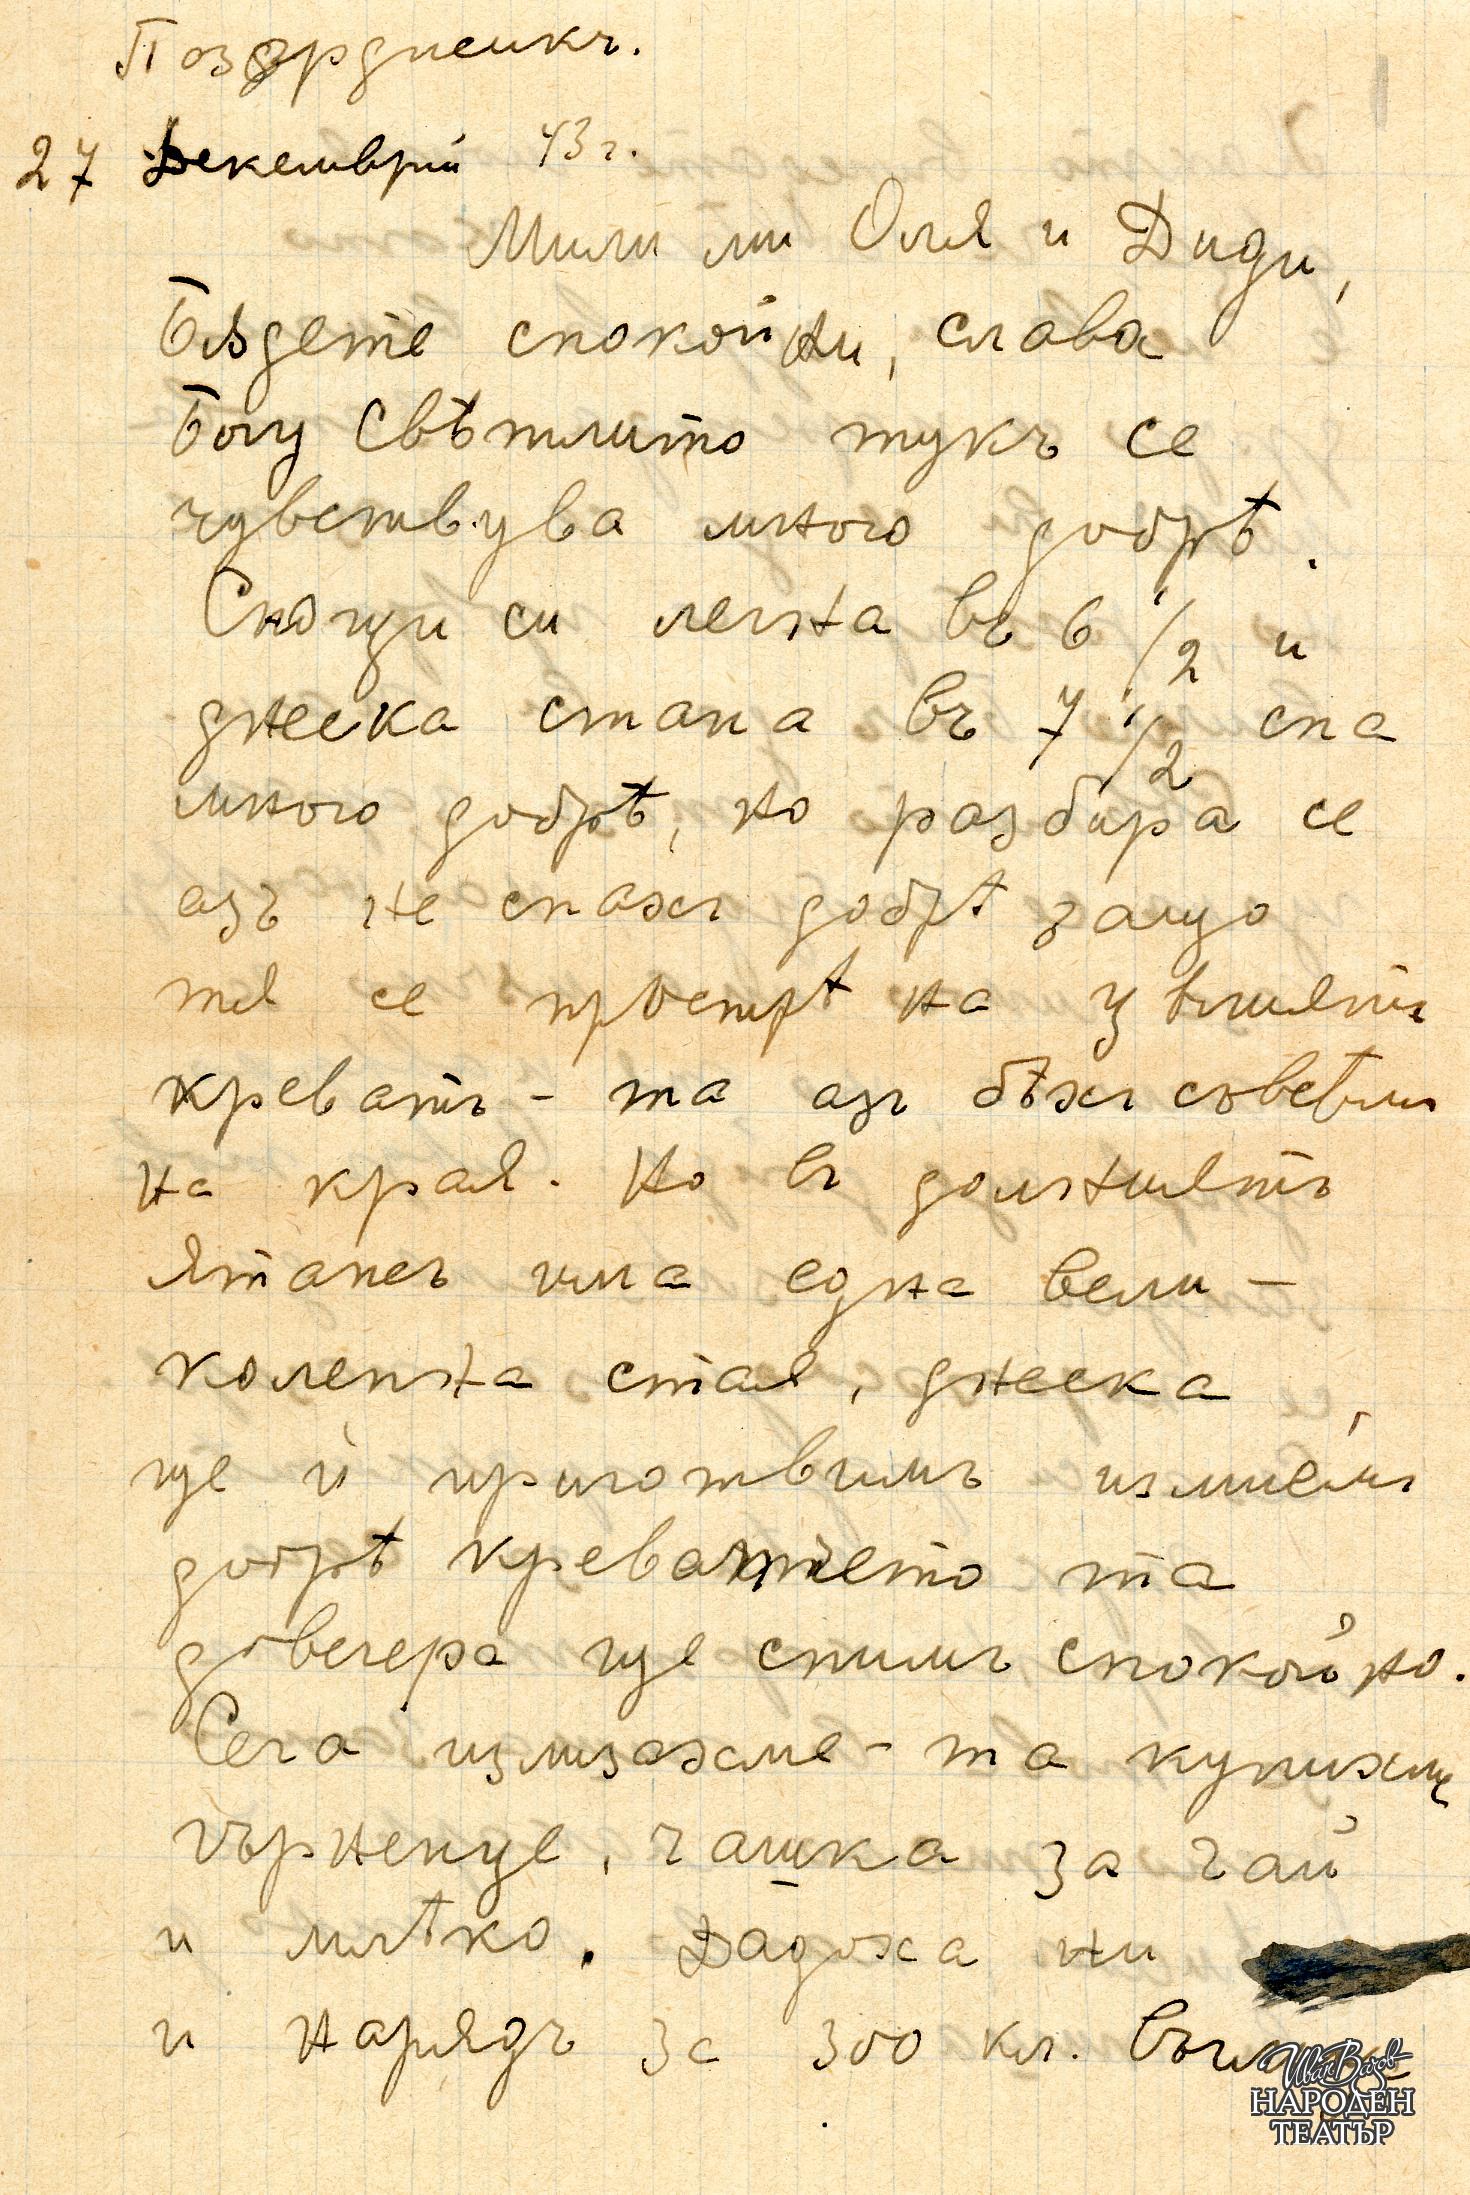 27 Декемврий 43 г.
Мили ми Оля и Диди,
Бѫдете спокойни, слава
Богу Свѣтлито тукъ се
чувствува много добрѣ.
Снощи си легна въ 6 1/2 и
днеска стана въ 7 1/2 спа
много добрѣ, но разбира се
азъ не спахъ добрѣ защо
тя се прострѣ на
креватъ - та азъ бѣхъ съвсѣмъ
на края. Но въ долния етъ
ятакъ има една вели-
колепна стая, днеска
ще ѝ приготвимъ измиемъ
добрѣ креватчето та
довечера ще спимъ спокойно.
Сега излизахме - та купихме
гърненце, чашка за чай
и млѣко. Дадоха ни
и нарядъ за 300 кл. въглища
Иван Вазов
НАРОДЕН
ТЕАТЪР